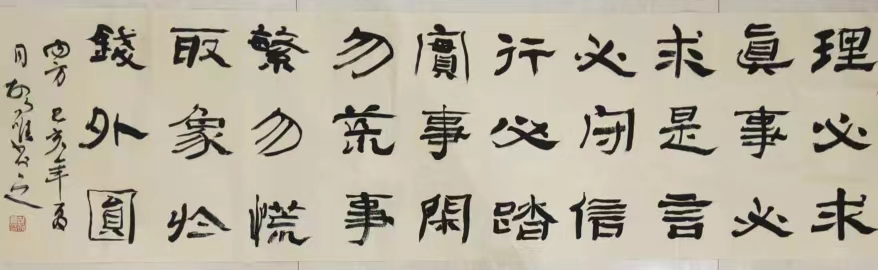 理必求
眞事必
求是言
必守信
行必踏
實事閑
勿荒事
繁勿慌
取象於
錢外圓
内方 己亥年夏
月